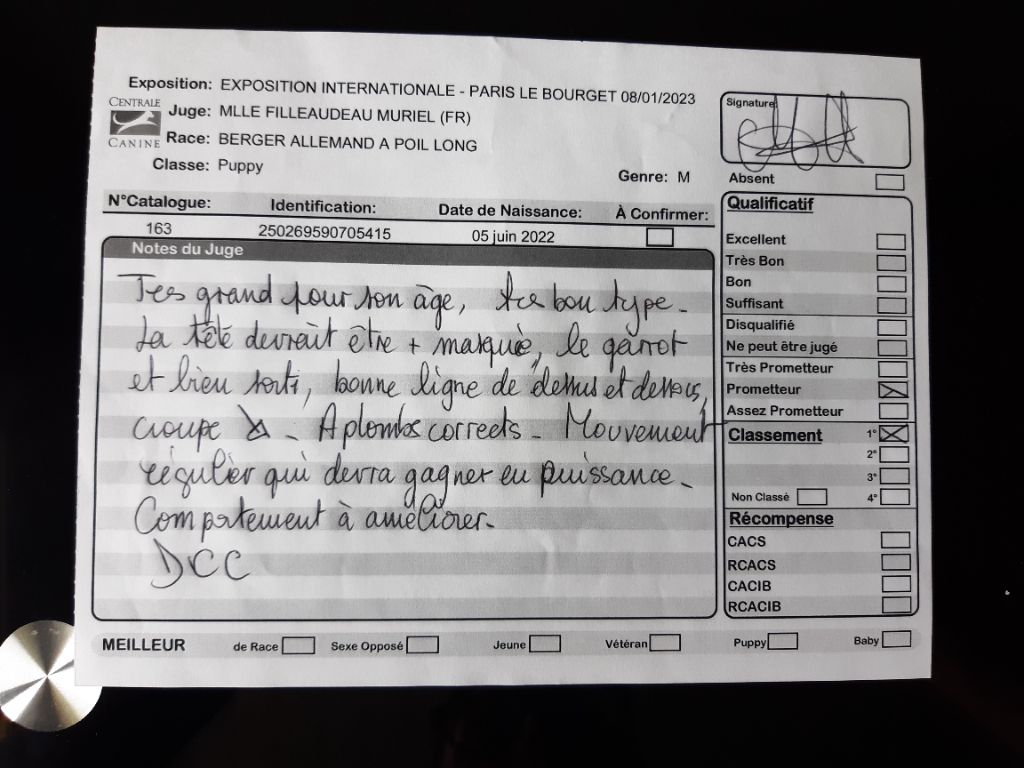 Exposition: EXPOSITION INTERNATIONALE - PARIS LE BOURGET 08/01/2023
CENTRALE CANINE
Juge: MLLE FILLEAUDEAU MURIEL (FR)
Race: BERGER ALLEMAND A POIL LONG
Classe: Puppy
Genre: M
N°Catalogue: Identification: Date de Naissance: À Confirmer:
163 250269590705415 05 juin 2022
Notes du Juge
Très grand pour son âge, très bon type.
La tête devrait être + marquée, le garrot
et bien sorti, bonne ligne de dessus et dessous,
croupe ↘. Aplombs corrects. Mouvement
régulier qui devra gagner en puissance.
Comportement à améliorer.
DCC
Signature
Absent
Qualificatif
Excellent
Très Bon
Bon
Suffisant
Disqualifié
Ne peut être jugé
Très Prometteur
Prometteur
Assez Prometteur
Classement 1°
2°
3°
Non Classé 4°
Récompense
CACS
RCACS
CACIB
RCACIB
MEILLEUR de Race Sexe Opposé Jeune Vétéran Puppy Baby